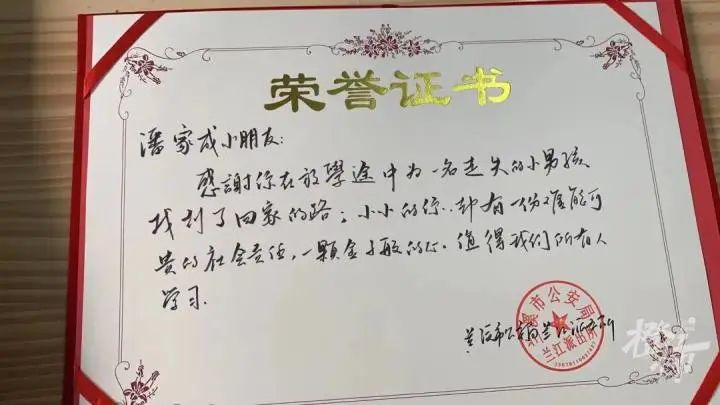 荣誉证书
潘家成小朋友:
感謝你在放學途中为一名走失的小男孩
找到了回家的路;小小的你..却有一份难能可
贵的社会责任,一颗金子般的心.值得我们所有人
学习.
兰溪市公安局兰江派出所
兰溪市公安局
兰江派出所
橙柿